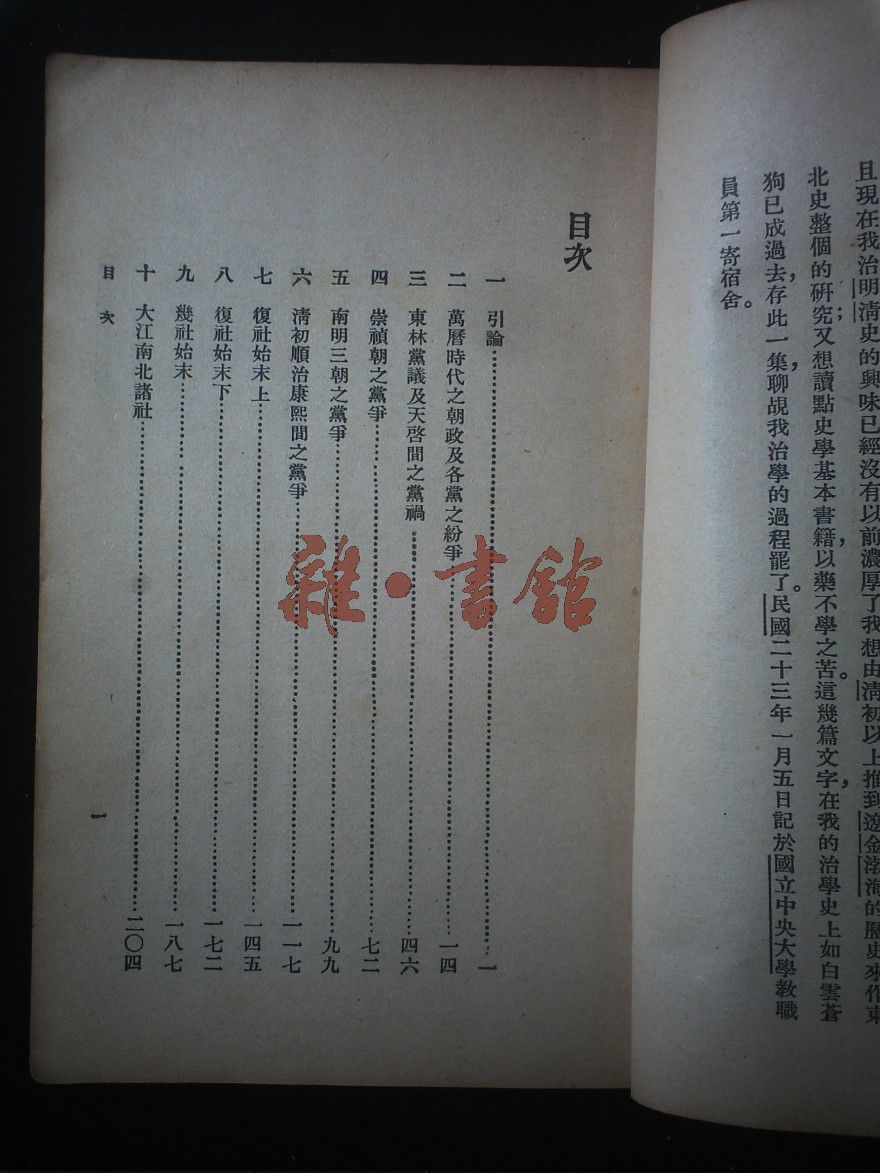 且現在我治明清史的興味已經沒有以前濃厚了我想由清初以上推到遼金渤海的歷史來作東
北史整個的研究；又想讀點史學基本書籍，以藥不學之苦。這幾篇文字，在我的治學史上如白雲蒼
狗已成過去，存此一集，聊覘我治學的過程罷了。民國二十三年一月五日記於國立中央大學教職
員第一寄宿舍。
目次
一 引論……一
二 萬曆時代之朝政及各黨之紛爭……一四
三 東林黨議及天啓間之黨禍……四六
四 崇禎朝之黨爭……七二
五 南明三朝之黨爭……九九
六 清初順治康熙間之黨爭……一一七
七 復社始末上……一四五
八 復社始末下……一七二
九 幾社始末……一八七
十 大江南北諸社……二〇四
目次
一
雜·書館